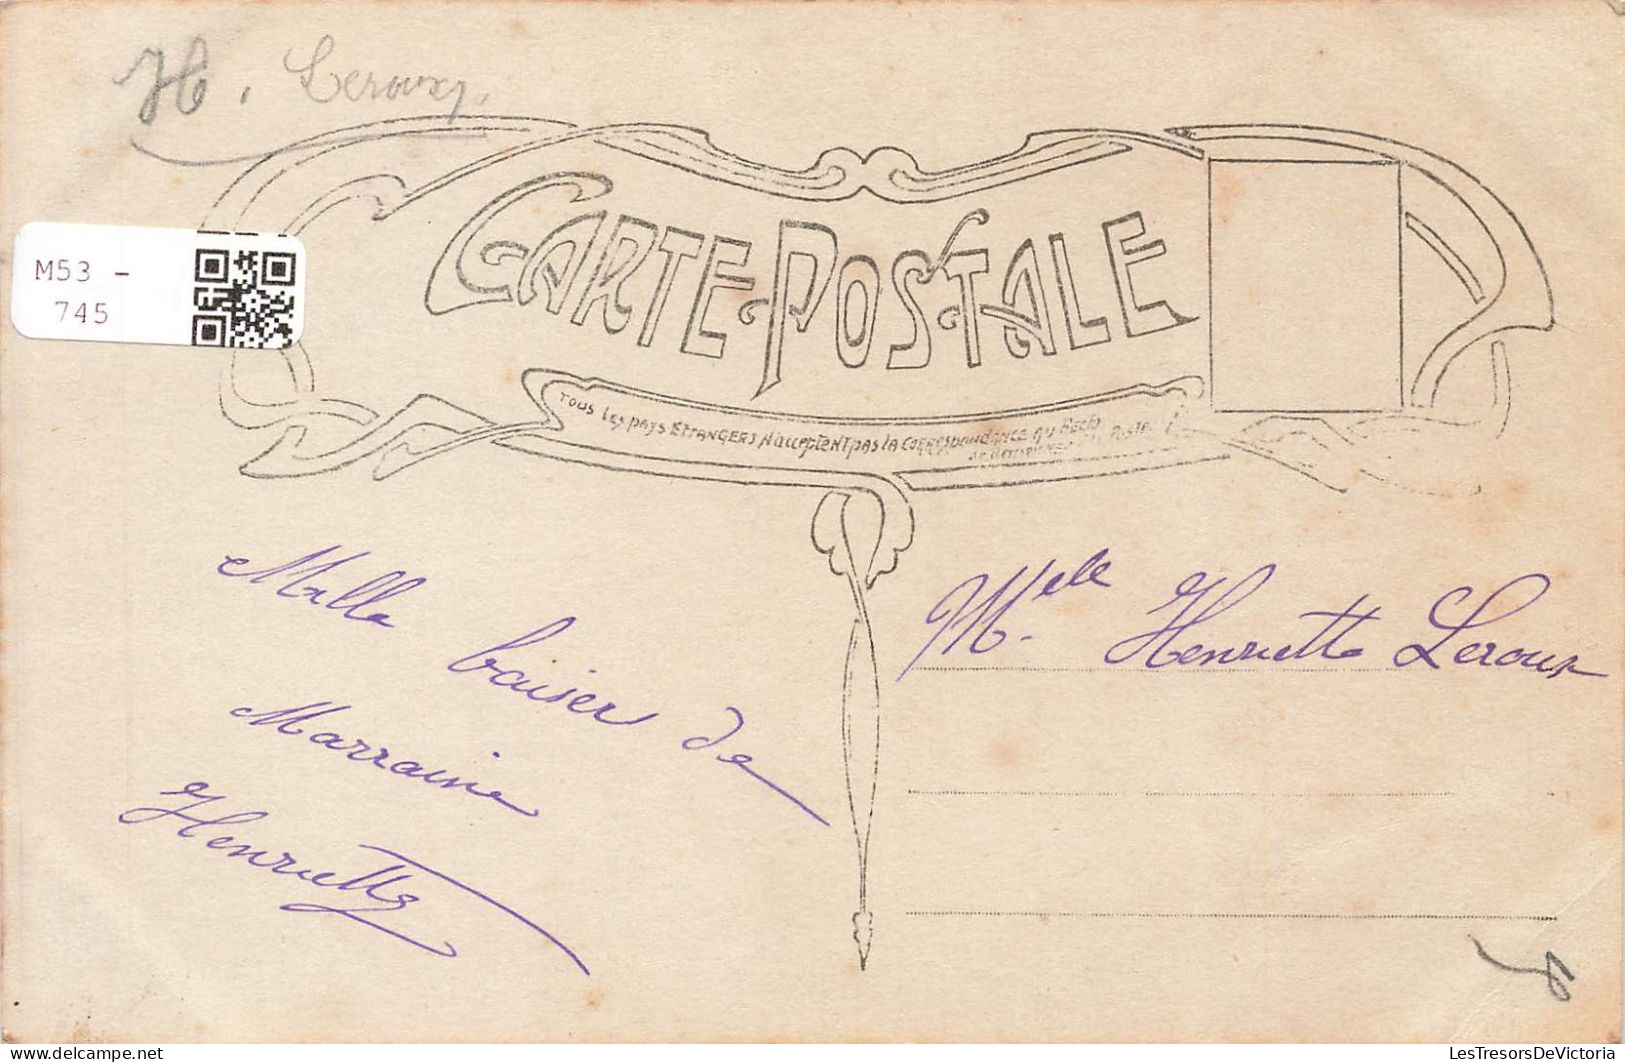 H. Leroux
M53 -
745
CARTE POSTALE
Tous les pays Etrangers n'acceptent pas la correspondance au Recto
Mille
baiser de
Marraine
Henriette
Melle Henriette Leroux
LesTresorsDeVictoria